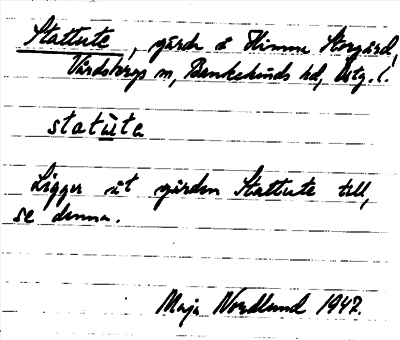 Stattute, gärde å Himna Storgård,
Vårdsbergs sn, Bankekinds hd, Östg. l.
statùta
Ligger åt gården Stattute till,
se denna.
Maja Nordlund 1947.